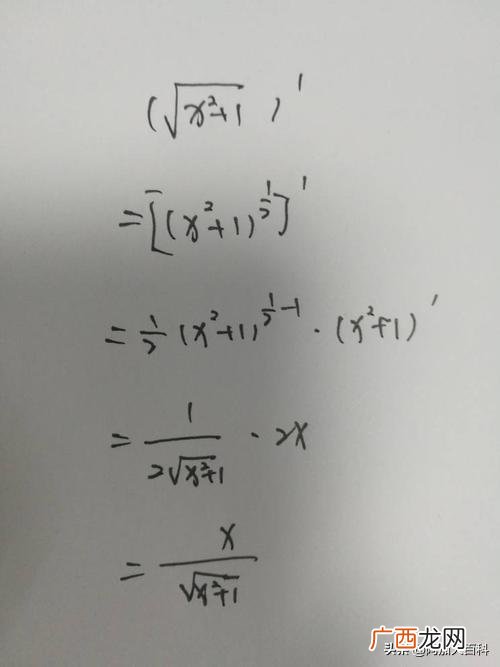 (√(x²+1))'
=[(x²+1)^(1/2)]'
=1/2(x²+1)^(1/2-1)·(x²+1)'
=1/(2√(x²+1))·2x
=x/√(x²+1)
广西龙网